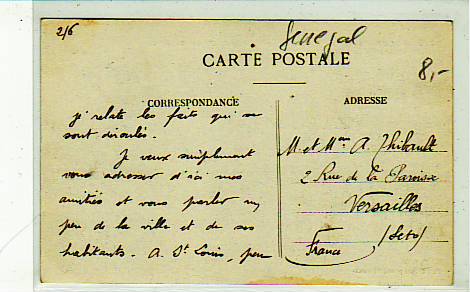 2/6
Senegal
8,-
CARTE POSTALE
CORRESPONDANCE
ADRESSE
je relate les faits qui se
sont déroulés.
Je veux simplement
vous adresser d'ici mes
amitiés et vous parler un
peu de la ville et de ses
habitants. A St Louis, peu
M. et Mme A. Thibault
2 Rue de la Paroisse
Versailles
(S et O)
France